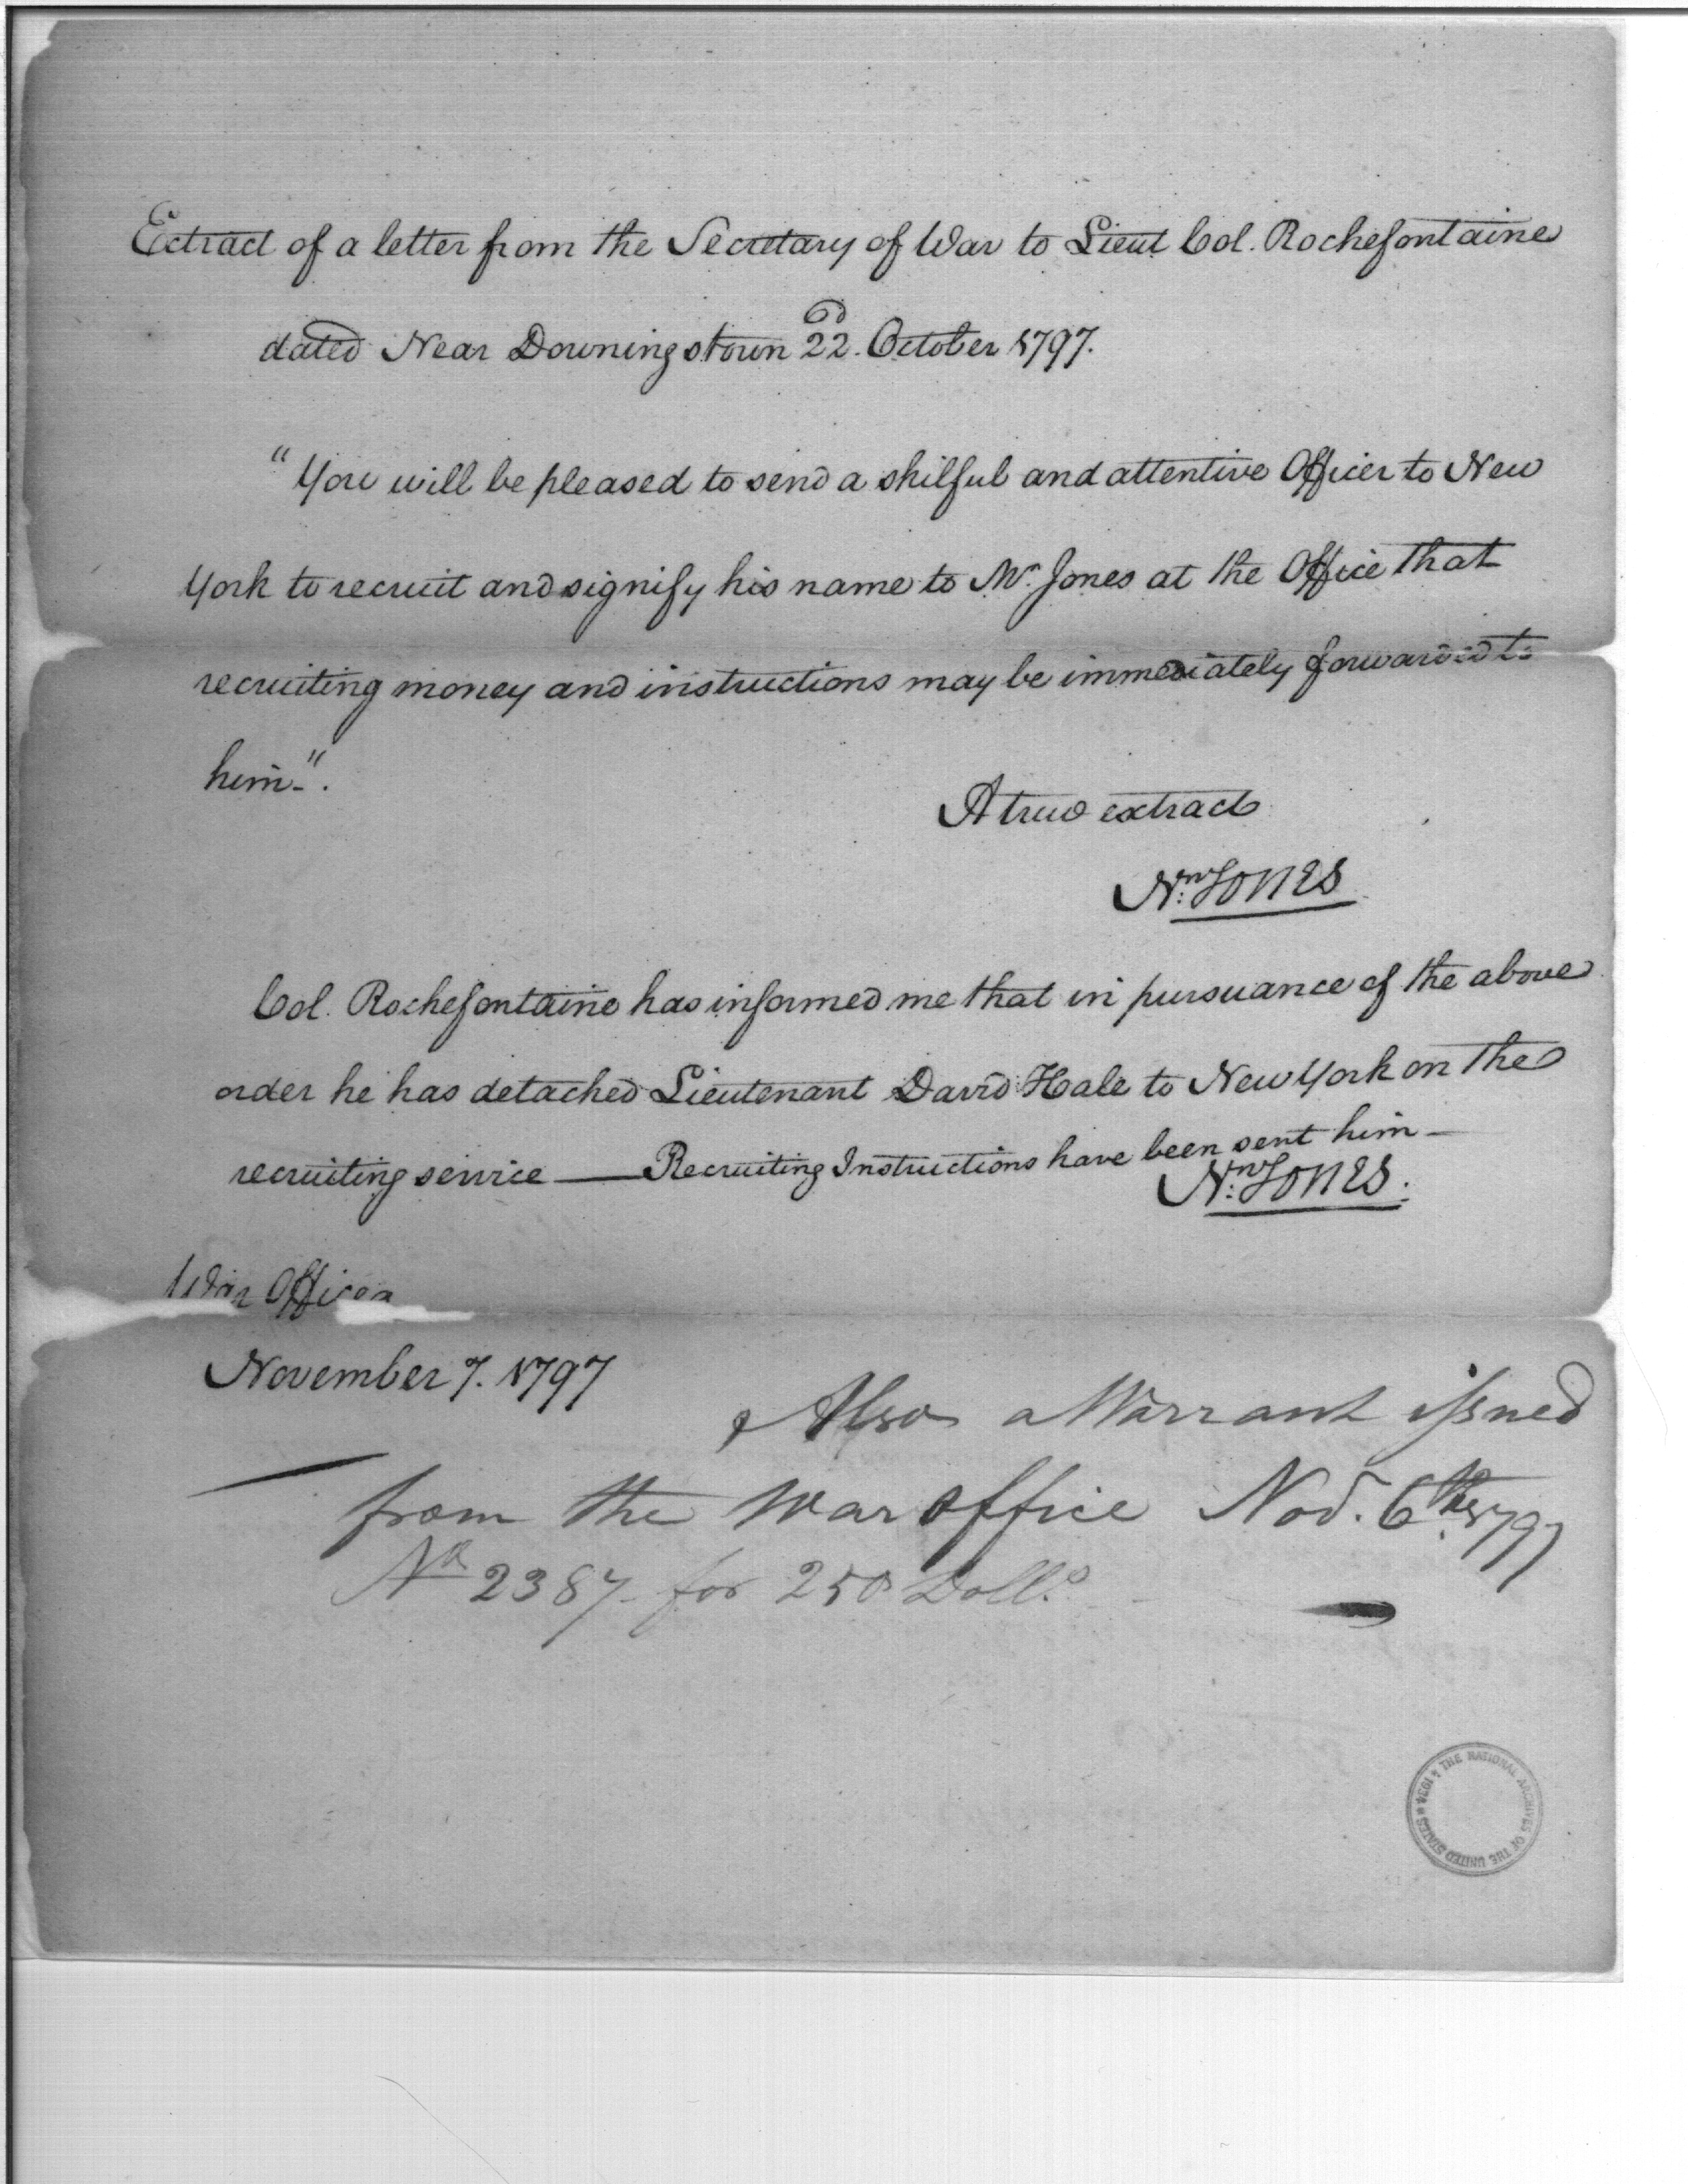 Extract of a letter from the Secretary of War to Lieut Col. Rochefontaine
dated Near Downingstown 22d. October 1797.
"You will be pleased to send a skilful and attentive Officer to New
York to recruit and signify his name to Mr. Jones at the Office that
recruiting money and instructions may be immediately forwarded to
him-".
A true extract
Nn. Jones
Col. Rochefontaine has informed me that in pursuance of the above
order he has detached Lieutenant David Hale to New York on the
recruiting service — Recruiting Instructions have been sent him —
Nn. Jones.
War Office
November 7. 1797
Also a Warrant issued
from the War office Nov. 6th. 1797
No 2387 - for 250 Dolls.
THE NATIONAL ARCHIVES OF THE UNITED STATES 1934